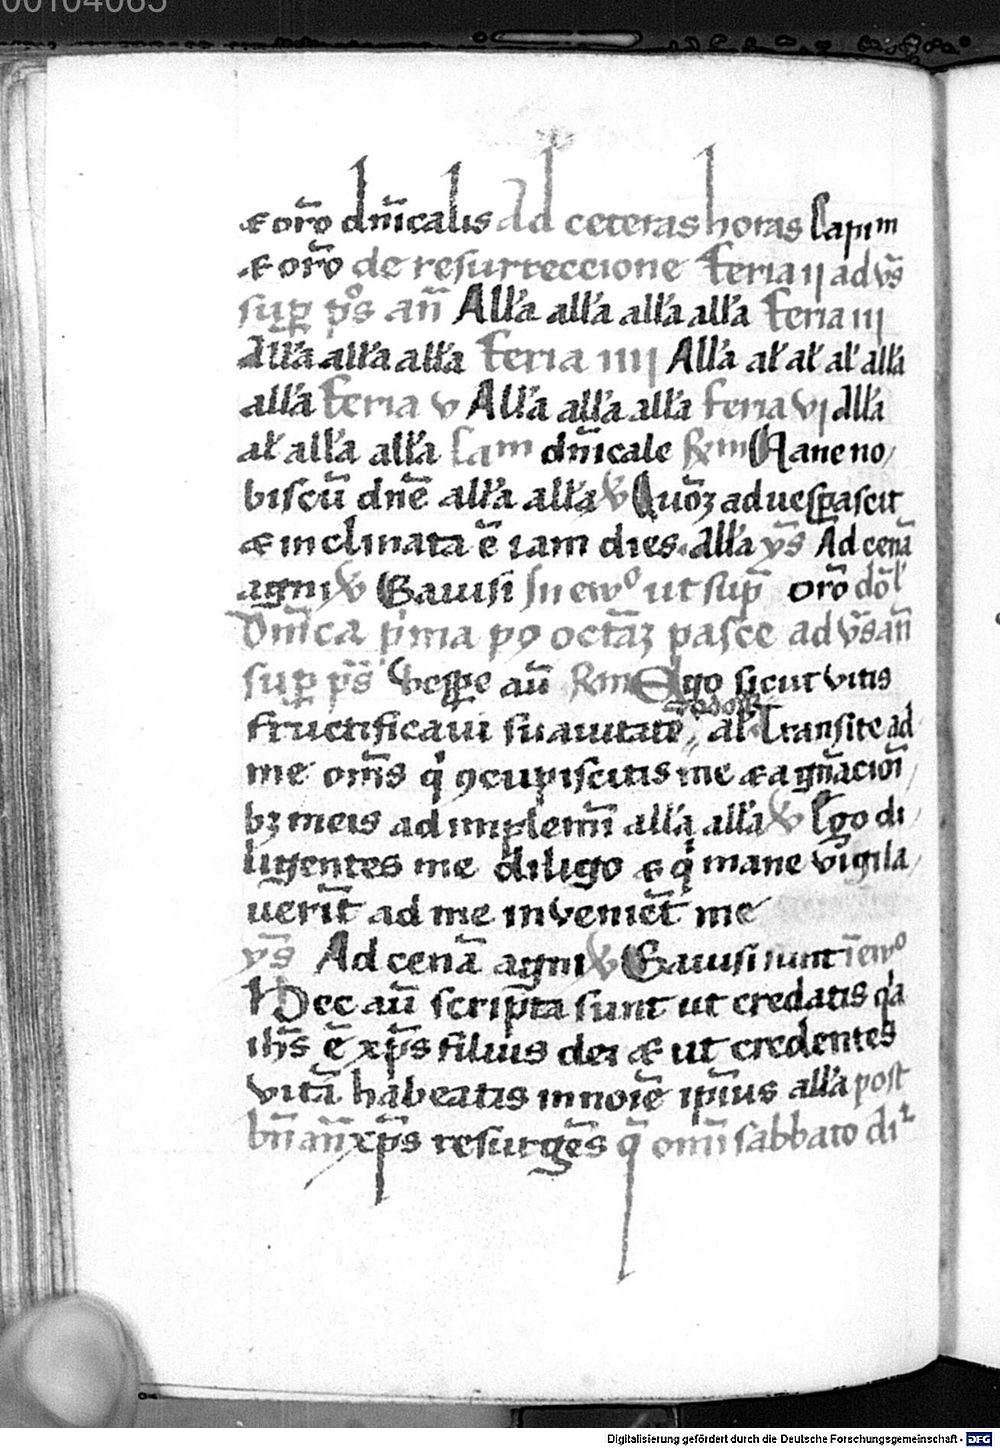 00104065
⁊ orō dn̄icalis Ad ceteras horas Capm
⁊ orō de resurreccione Feria ii ad vs̄
sup ps an̄ All'a all'a all'a all'a Feria iii
All'a all'a all'a Feria iiii All'a al' al' al' all'a
all'a Feria v All'a all'a all'a feria vi All'a
al' all'a all'a Cam dn̄icale Rm Mane no/
biscū dn̄e all'a all'a ℣ Quōꝫ aduesꝑascit
⁊ inclinata ē iam dies all'a ys̄ Ad cenā
agni ℣ Gauisi In ewo ut sup̄ orō dōl
Dn̄ica p'ma po octāꝫ pasce ad vs̄ an̄
suꝑ ps̄ Vesꝑe aū Rm Ego sicut vitis
fructificaui suauitatē odoris al' Transite ad
me om̄s q' ꝯcupiscitis me ⁊ a gn̄acioī/
bꝫ meis adimplemī all'a all'a ℣ Ego di/
ligentes me diligo ⁊ q' mane vigila/
uerīt ad me inveniēt me
ys̄ Ad cenā agni ℣ Gauisi sunt ī ewo
Hec aū scrip̄ta sunt ut credatis q'a
ih̄s ē xp̄s filius dei ⁊ ut credentes
vitā habeatis in noīe ip̄ius all'a post
bn̄ an̄ xp̄s resurgēs q̄ om̄i sabbato dī
Digitalisierung gefördert durch die Deutsche Forschungsgemeinschaft - DFG